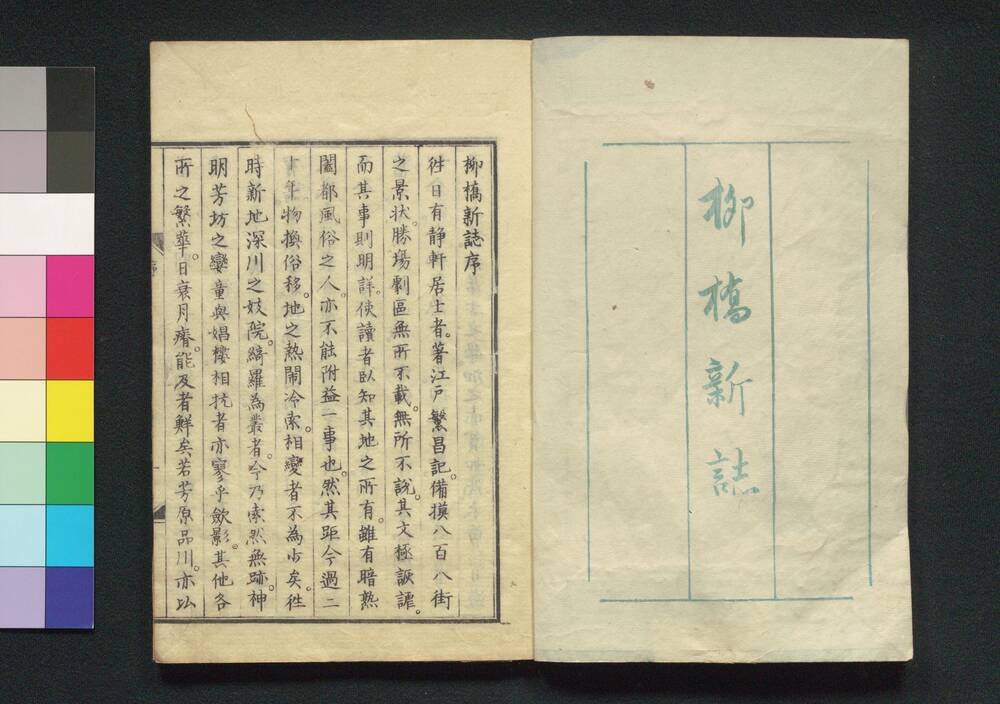 柳橋新誌
柳橋新誌序
徃日有静軒居士者。著江戸繁昌記。備摸八百八街
之景状。勝場劇區無所不載。無所不説。其文極諏謔。
而其事則明詳。使讀者臥知其地之所有。雖有暗熟
闔都風俗之人。亦不能附益一事也。然其距今過二
十年。物換俗移。地之熱閙冷索。相變者不為少矣。徃
時新地深川之妓院。綺羅為叢者。今乃索然無跡。神
明芳坊之孌童與娼樓相抗者亦寥乎歛影。其他各
所之繁華。日衰月瘠。能及者鮮矣若芳原品川。亦以
序